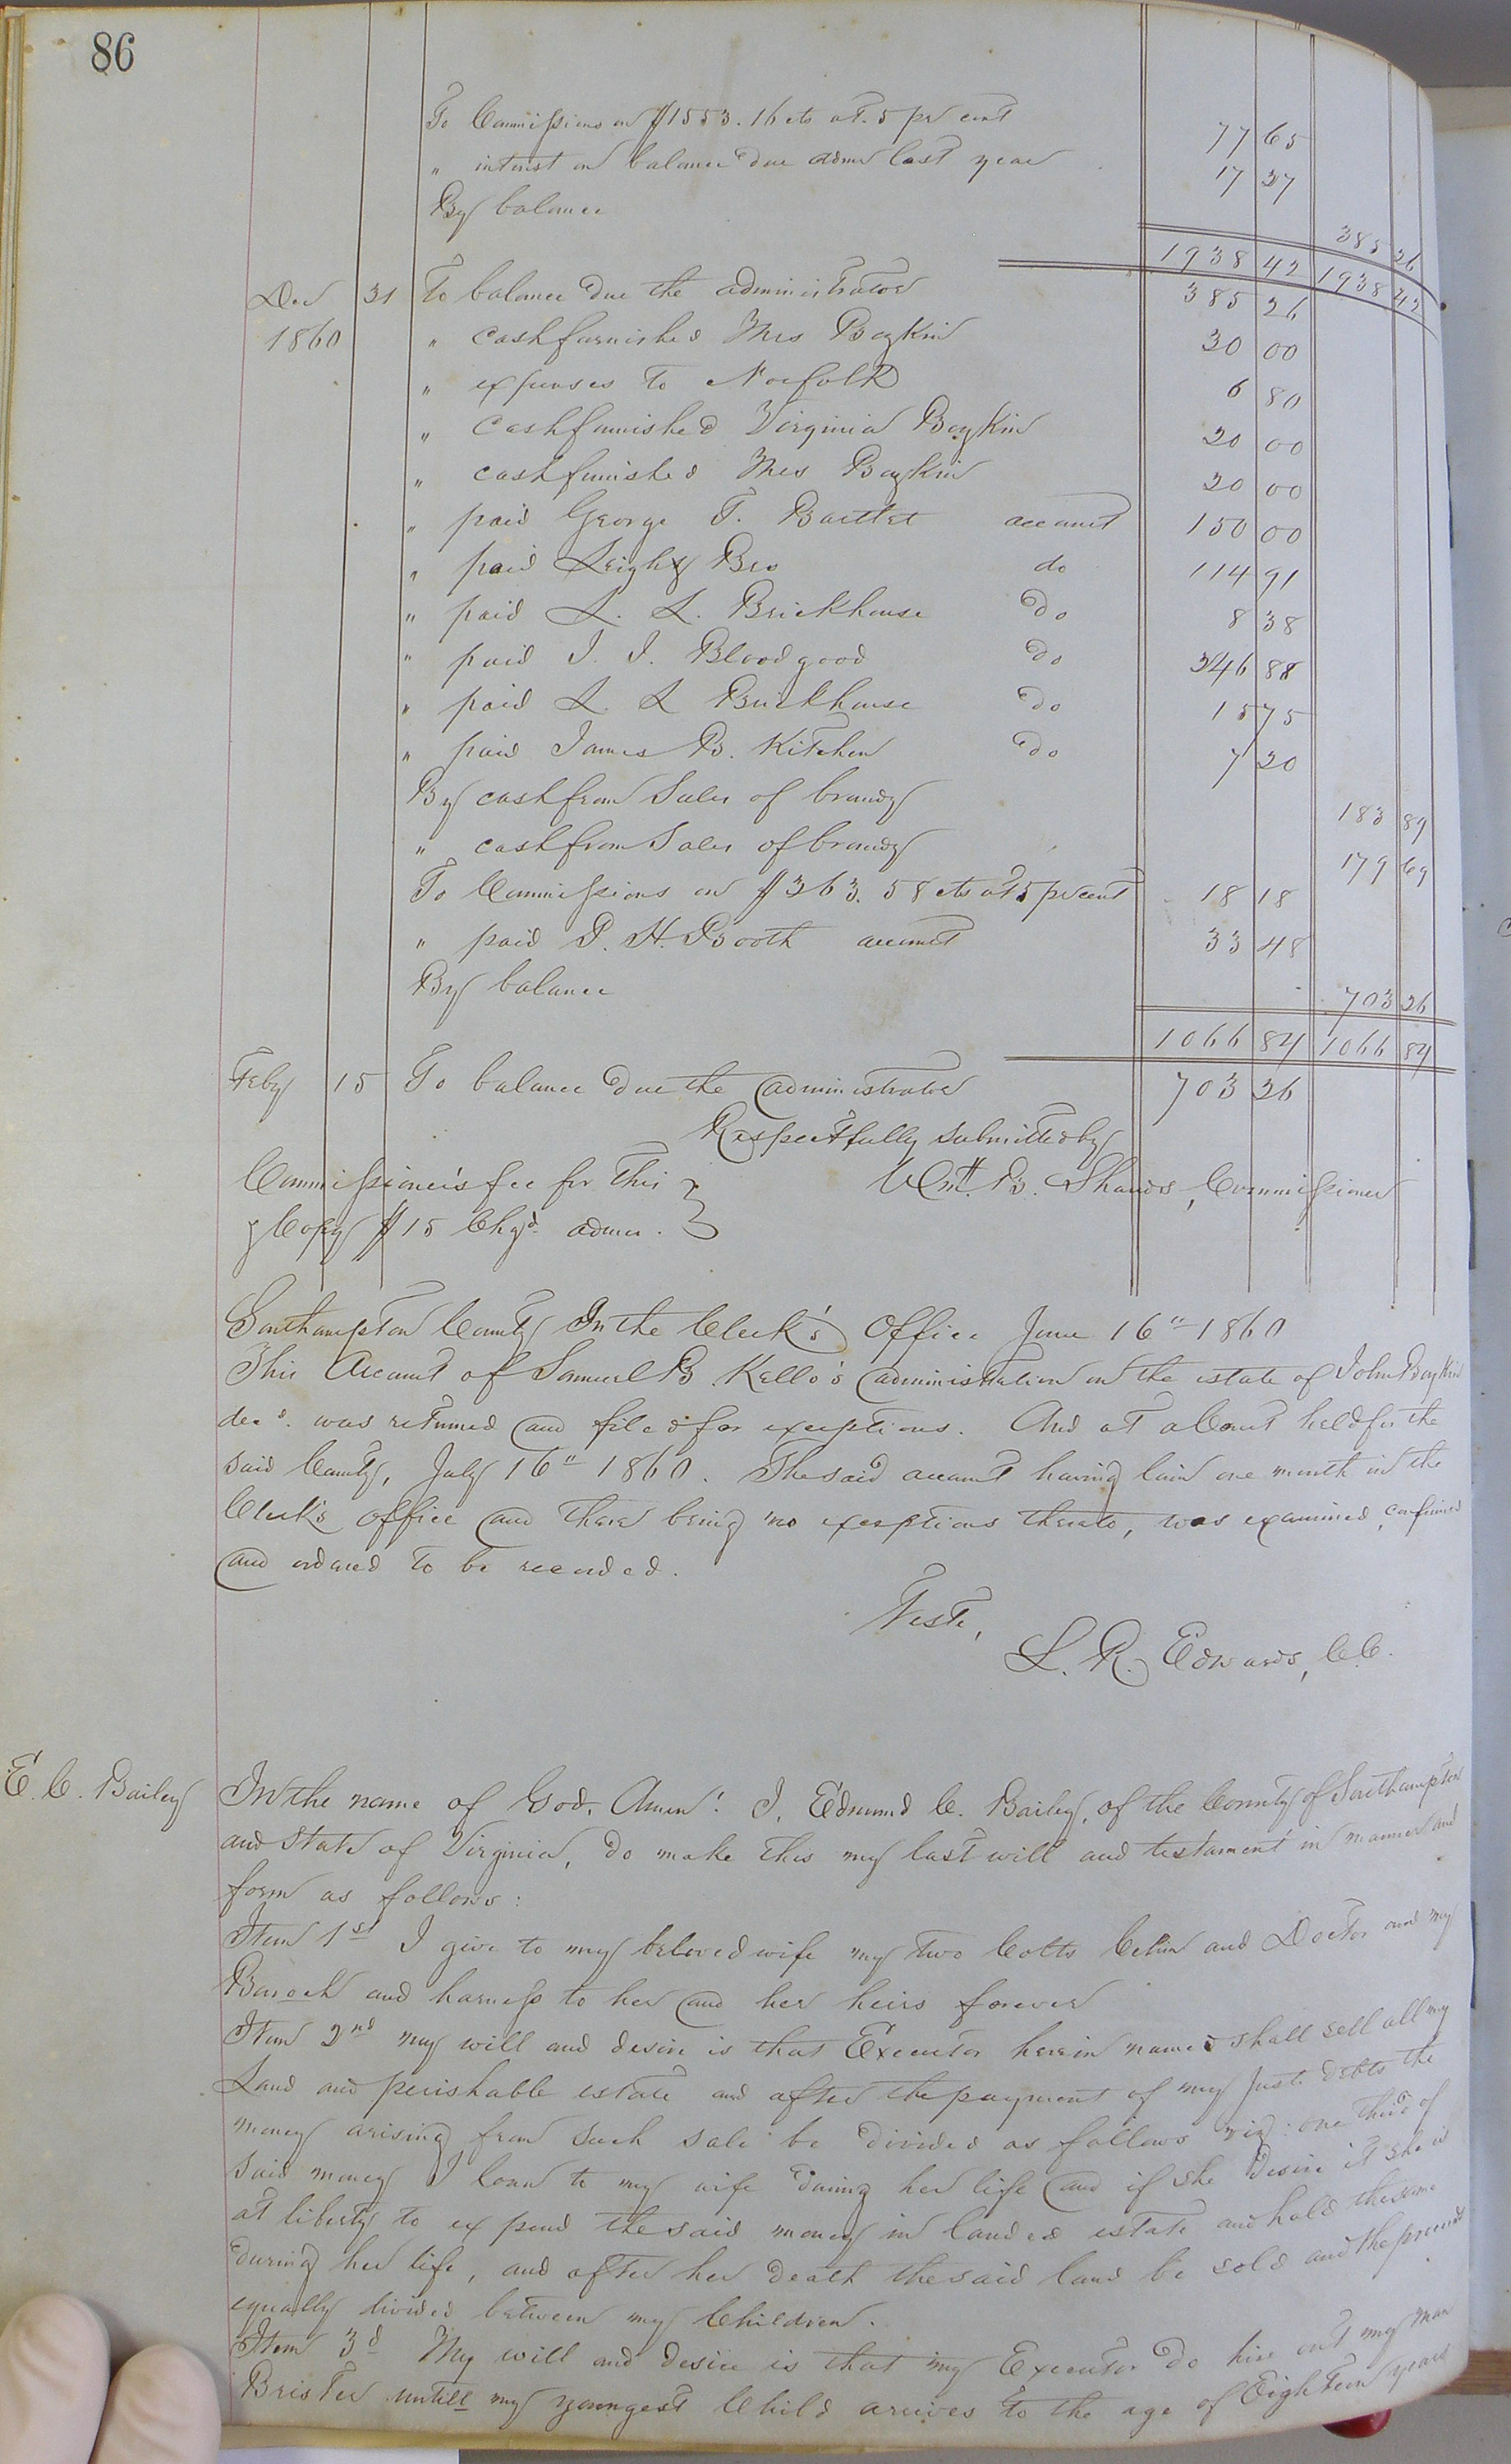 86
To Commissions on $1553.16 cts at 5 pr cent 77 65
" interest on balance due admr last year 17 37
By balance 385 26
1938 42 1938 42
Dec 31 To balance due the administrator 385 26
1860 " cash furnished Mrs Boykin 30 00
" expenses to Norfolk 6 80
" cash furnished Virginia Boykin 20 00
" cash furnished Mrs Boykin 20 00
" paid George T. Bartlet account 150 00
" paid Leigh & Bro do 114 91
" paid L. L. Brickhouse do 8 38
" paid J. J. Bloodgood do 246 88
" paid L. L Brickhouse do 15 75
" paid James B. Kitchen do 7 20
By cash from Sales of brandy 183 89
" cash from Sales of brandy 179 69
To Commissions on $363.58 cts at 5 pr cent 18 18
" paid P. H. Booth account 33 48
By balance 703 26
1066 84 1066 84
Feby 15 To balance due the administrator 703 26
Respectfully submitted by
Commissioner's fee for this Wm. B. Shands, Commissioner
& Copy $15 Chgd. admr.
Southampton County In the Clerk's Office June 16" 1860
This Account of Samuel B. Kello's administration on the estate of John Boykin
decd. was returned and filed for exceptions. And at a Court held for the
said County, July 16" 1860. The said account having lain one month in the
Clerk's office and there being no exceptions thereto, was examined, confirmed
and ordered to be recorded.
Teste,
L. R. Edwards, C.C.
E. C. Bailey In the name of God, Amen! I, Edmund C. Bailey, of the County of Southampton
and State of Virginia, do make this my last will and testament in manner and
form as follows:
Item 1st I give to my beloved wife my two Colts and Doctor and my
Baroch and harness to her and her heirs forever
Item 2nd my will and desire is that Executor herein named shall sell all my
Land and perishable estate and after the payment of my just debts the
money arising from such sale be divided as follows viz: one third of
said money I loan to my wife during her life and if she desire it she is
at liberty to expend the said money in landed estate and hold the same
during her life, and after her death the said land be sold and the proceeds
equally divided between my Children.
Item 3d My will and desire is that my Executor do hire out my man
Brister untill my youngest Child arrives to the age of Eighteen years